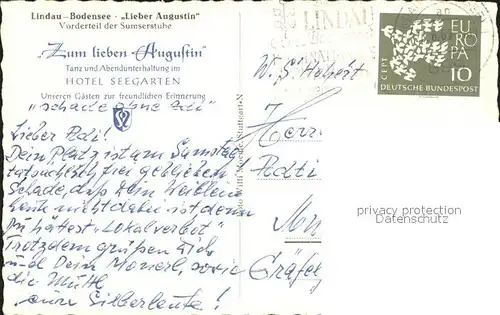 Lindau - Bodensee · „Lieber Augustin"
Vorderteil der Sumserstube
„Zum lieben Augustin"
Tanz und Abendunterhaltung im
HOTEL SEEGARTEN
Unseren Gästen zur freundlichen Erinnerung
„schade ohne Edi"
Lieber Edi!
Dein Platz ist am Samstag
tatsächlich frei geblieben
Schade, daß dein Weiblein
heute nicht dabei ist denn
Du hättest „Lokalverbot"
Trotzdem grüßen Dich
und Dein Monerl, sowie
die Mutti
eure Silberleute!
LINDAU
CEPT
EUROPA
10
DEUTSCHE BUNDESPOST
W. S.
Herr
Mn
Gräfel
Stuttgart-N
privacy protection
Datenschutz